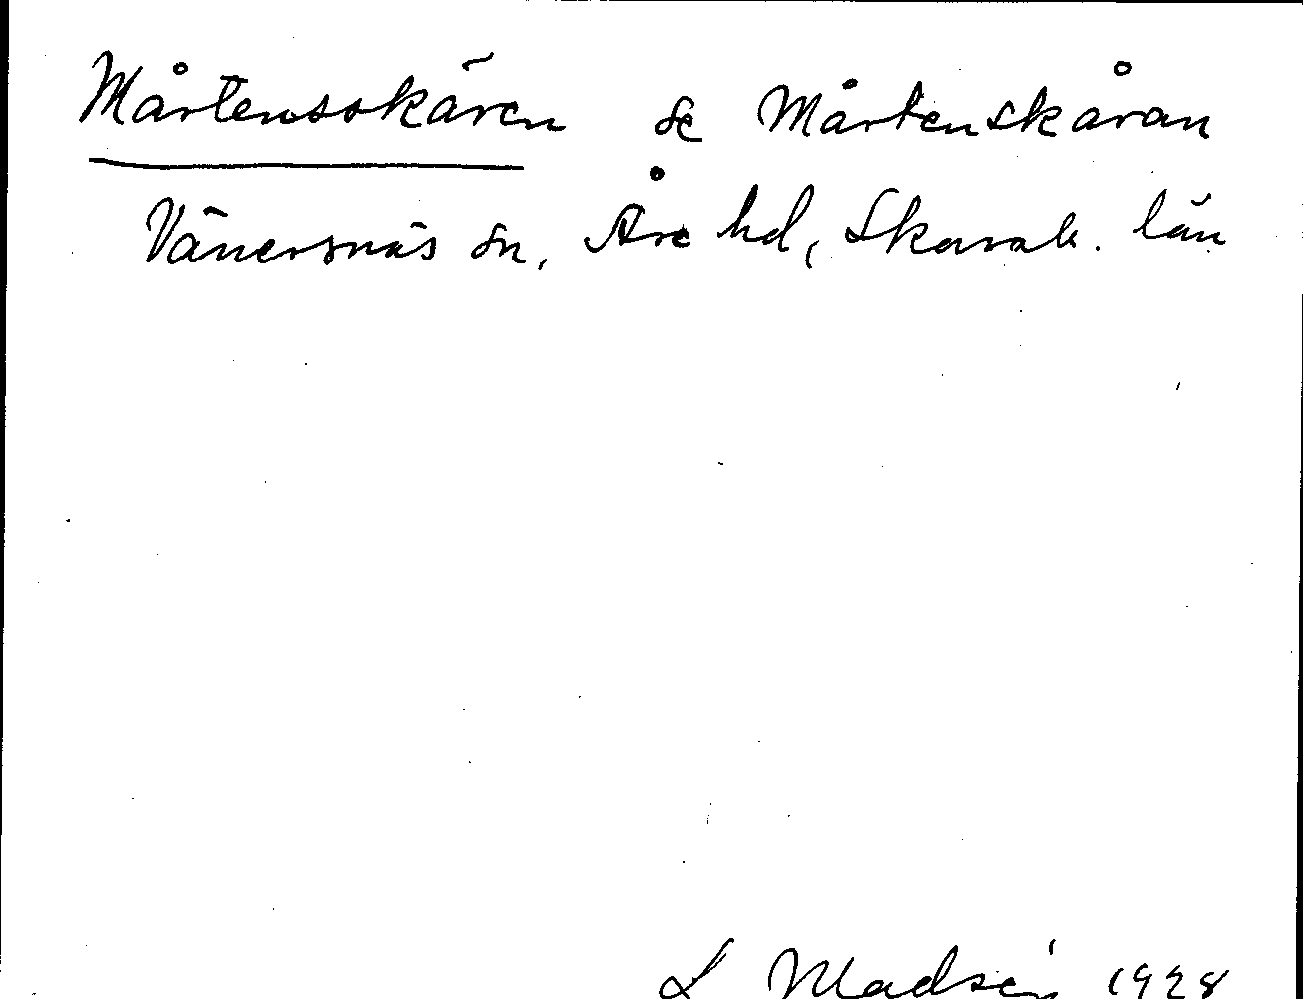 Mårtensskären se Mårtenskåran
Vänersnäs sn, Åre hd, Skarab. län
L Madsén 1928